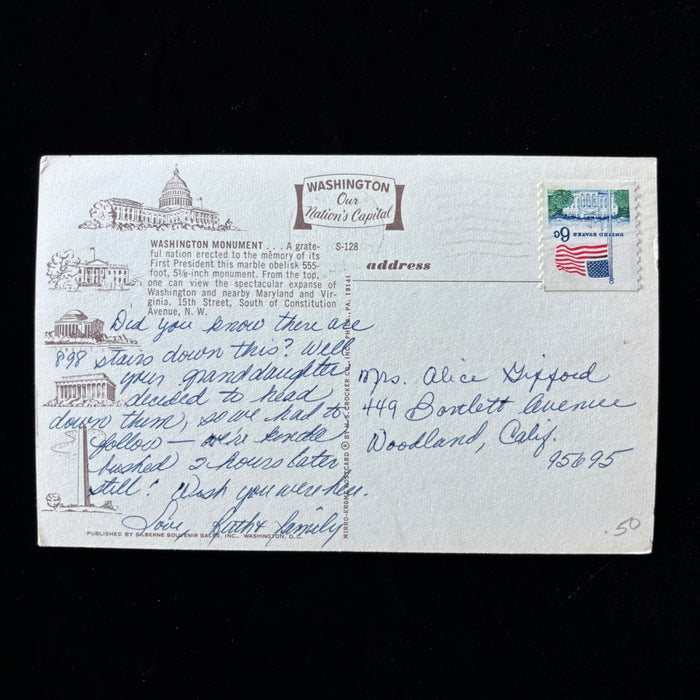 WASHINGTON
Our
Nation's Capital
WASHINGTON MONUMENT . . . A grate-
ful nation erected to the memory of its
First President this marble obelisk 555-
foot, 5⅛-inch monument. From the top,
one can view the spectacular expanse of
Washington and nearby Maryland and Vir-
ginia. 15th Street, South of Constitution
Avenue, N. W.
S-128
address
UNITED STATES
6c
Did you know there are
898 stairs down this? Well
your granddaughter
decided to head
down them, so we had to
follow — we're kinda
bushed 2 hours later
still! Wish you were here.
Love, Ruth & Family
Mrs. Alice Gifford
449 Bartlett Avenue
Woodland, Calif.
95695
MIRRO-KROME POSTCARD © BY H. S. CROCKER CO., INC., PHILA., PA. 19141
PUBLISHED BY SILBERNE SOUVENIR SALES, INC., WASHINGTON, D.C.
.50